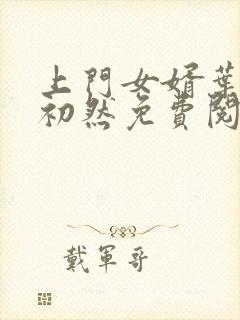 上門女婿葉
初然免費閱
戴軍哥